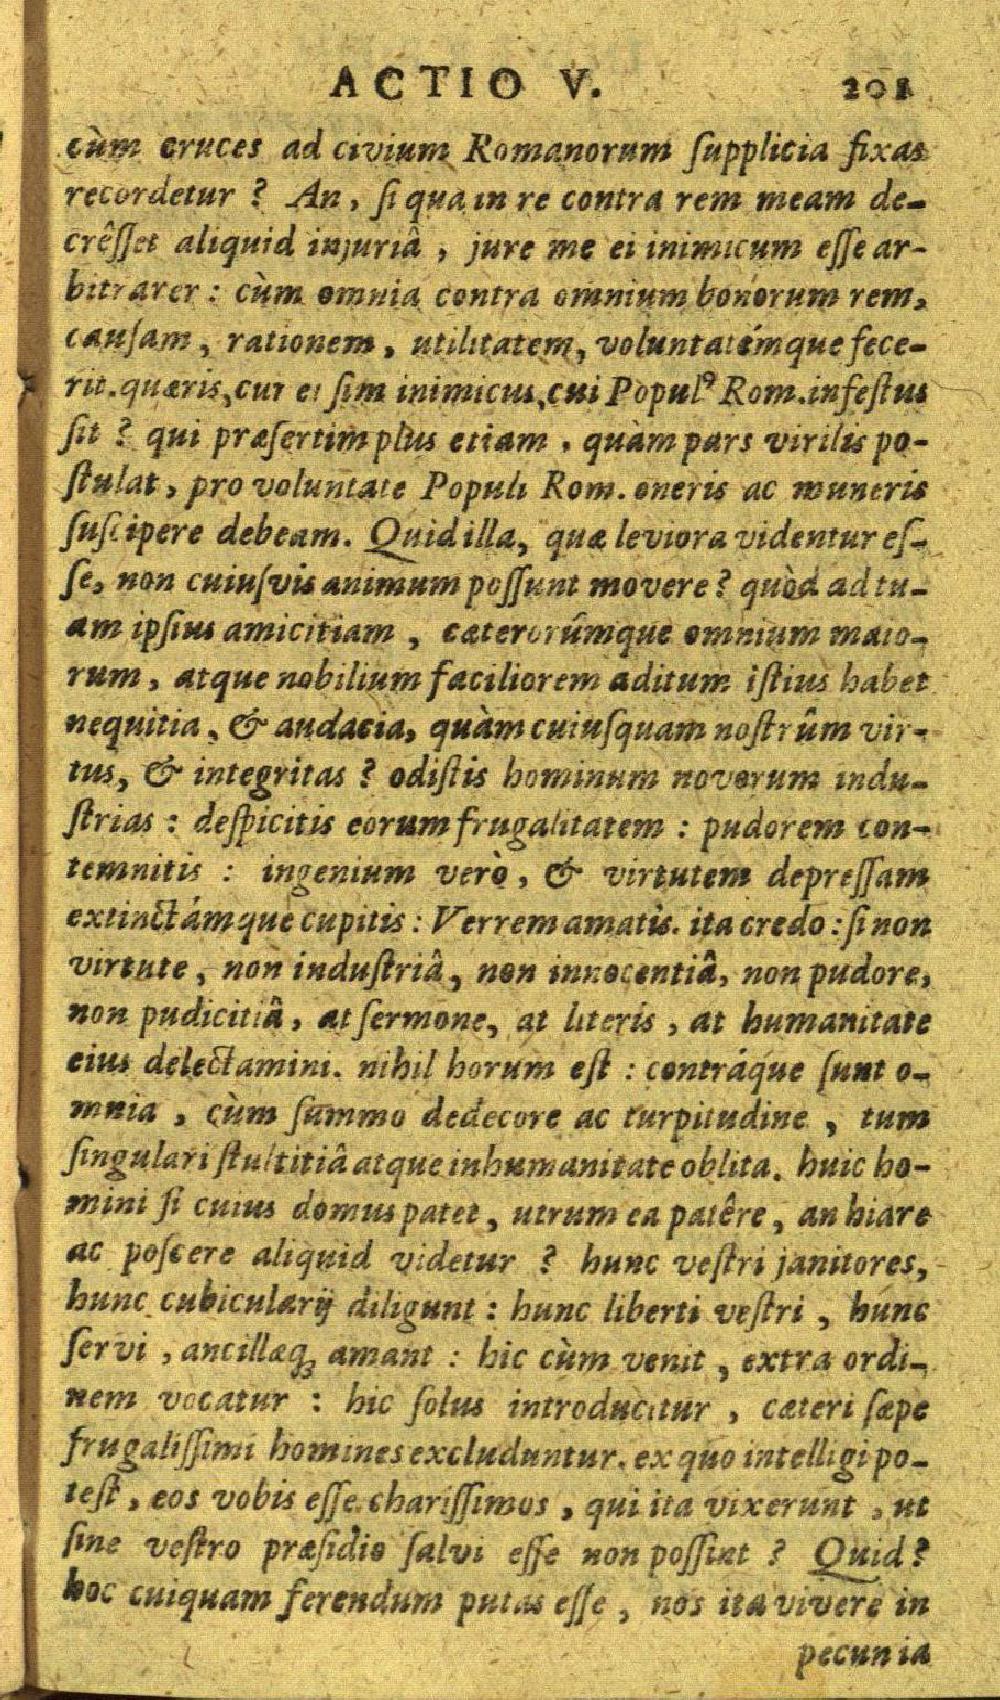 ACTIO V. 201
cùm cruces ad civium Romanorum ſupplicia fixas
recordetur ? An, ſi qua in re contra rem meam de-
crêſſet aliquid injuriâ, jure me ei inimicum eſſe ar-
bitrarer: cùm omnia contra omnium bonorum rem,
cauſam, rationem, utilitatem, voluntatémque fece-
rit. quæris, cur ei ſim inimicus, cui Populꝰ Rom. infeſtus
ſit ? qui præſertim plus etiam, quàm pars virilis po-
ſtulat, pro voluntate Populi Rom. oneris ac muneris
ſuſcipere debeam. Quid illa, quæ leviora videntur eſ-
ſe, non cuiuſvis animum poſſunt movere? quòd ad tu-
am ipſius amicitiam, cæterorúmque omnium maio-
rum, atque nobilium faciliorem aditum iſtius habet
nequitia, & audacia, quàm cuiuſquam noſtrûm vir-
tus, & integritas ? odiſtis hominum novorum indu-
ſtrias : deſpicitis eorum frugalitatem : pudorem con-
temnitis : ingenium verò, & virtutem depreſſam
extinctámque cupitis : Verrem amatis. ita credo : ſi non
virtute, non induſtriâ, non innocentiâ, non pudore,
non pudicitiâ, at ſermone, at literis, at humanitate
eius delectamini. nihil horum eſt : contráque ſunt o-
mnia, cùm ſummo dedecore ac turpitudine, tum
ſingulari ſtultitiâ atque inhumanitate oblita. huic ho-
mini ſi cuius domus patet, utrum ea patêre, an hiare
ac poſcere aliquid videtur ? hunc veſtri janitores,
hunc cubicularij diligunt : hunc liberti veſtri, hunc
ſervi, ancillæq; amant : hic cùm venit, extra ordi-
nem vocatur : hic ſolus introducitur, cæteri ſæpe
frugaliſſimi homines excluduntur. ex quo intelligi po-
teſt, eos vobis eſſe chariſſimos, qui ita vixerunt, ut
ſine veſtro præſidio ſalvi eſſe non poſſint ? Quid?
hoc cuiquam ferendum putas eſſe, nos ita vivere in
pecunia